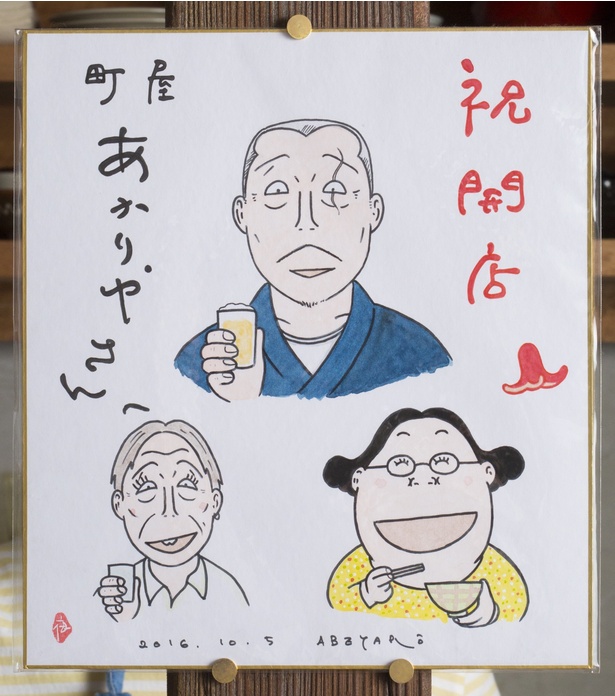 祝開店
町屋
あかりやさんへ
2016.10.5 ABEYARŌ